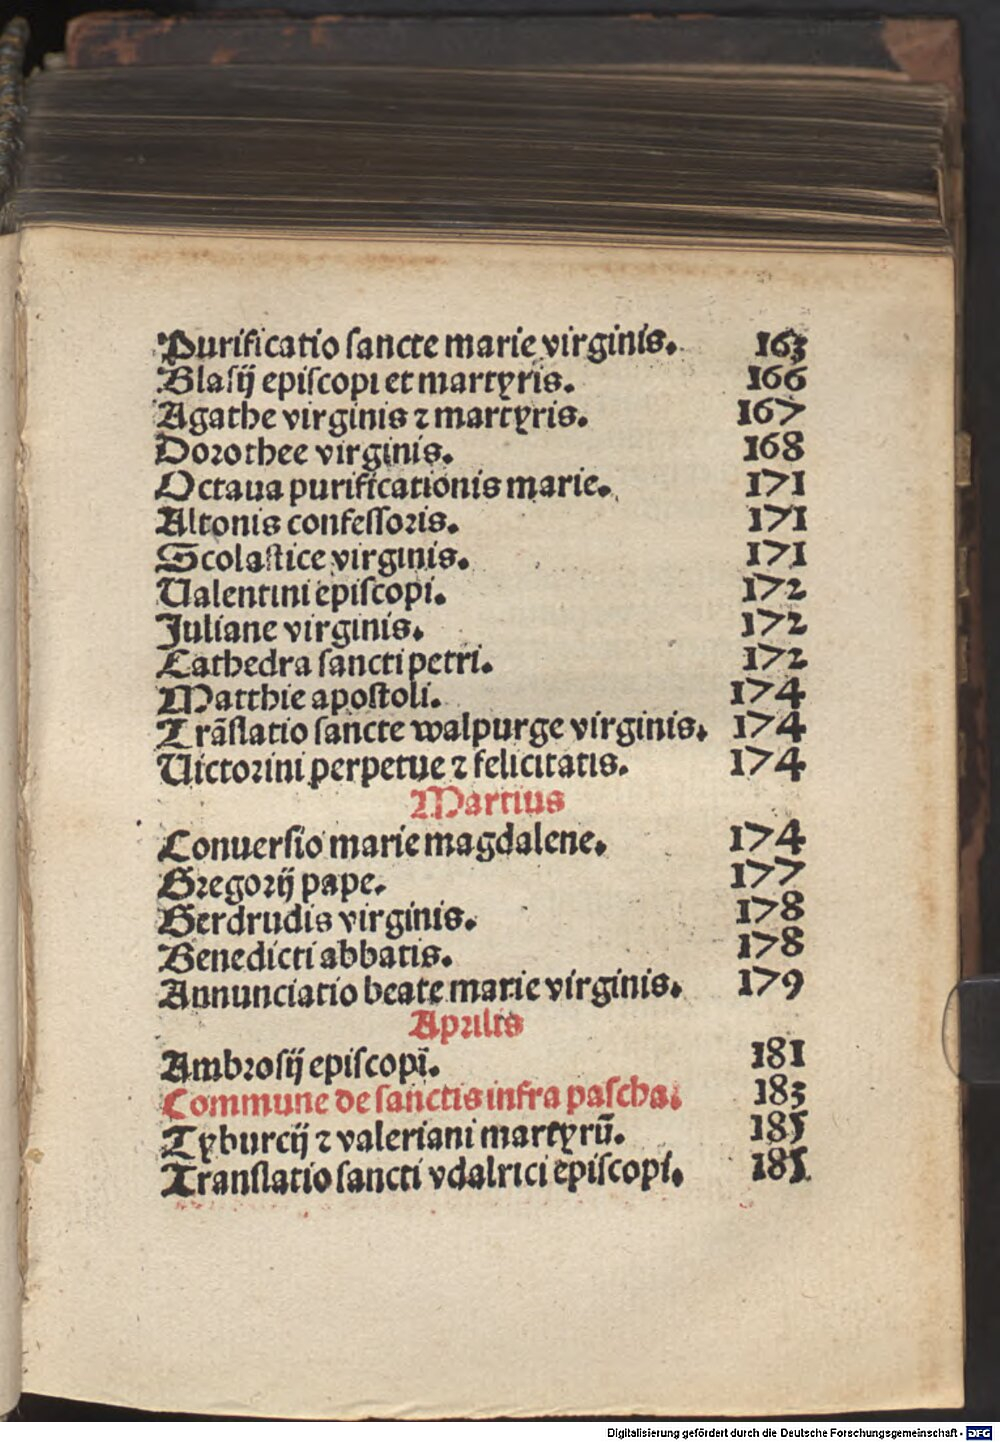 Purificatio sancte marie virginis. 163
Blasij episcopi et martyris. 166
Agathe virginis ⁊ martyris. 167
Dorothee virginis. 168
Octaua purificationis marie. 171
Altonis confessoris. 171
Scolastice virginis. 171
Ualentini episcopi. 172
Juliane virginis. 172
Cathedra sancti petri. 172
Matthie apostoli. 174
Trãslatio sancte walpurge virginis. 174
Uictorini perpetue ⁊ felicitatis. 174
Martius
Conuersio marie magdalene. 174
Gregorij pape. 177
Gerdrudis virginis. 178
Benedicti abbatis. 178
Annunciatio beate marie virginis. 179
Aprilis
Ambrosij episcopi. 181
Commune de sanctis infra pascha. 183
Tyburcij ⁊ valeriani martyrũ. 185
Translatio sancti vdalrici episcopi. 185
Digitalisierung gefördert durch die Deutsche Forschungsgemeinschaft - DFG